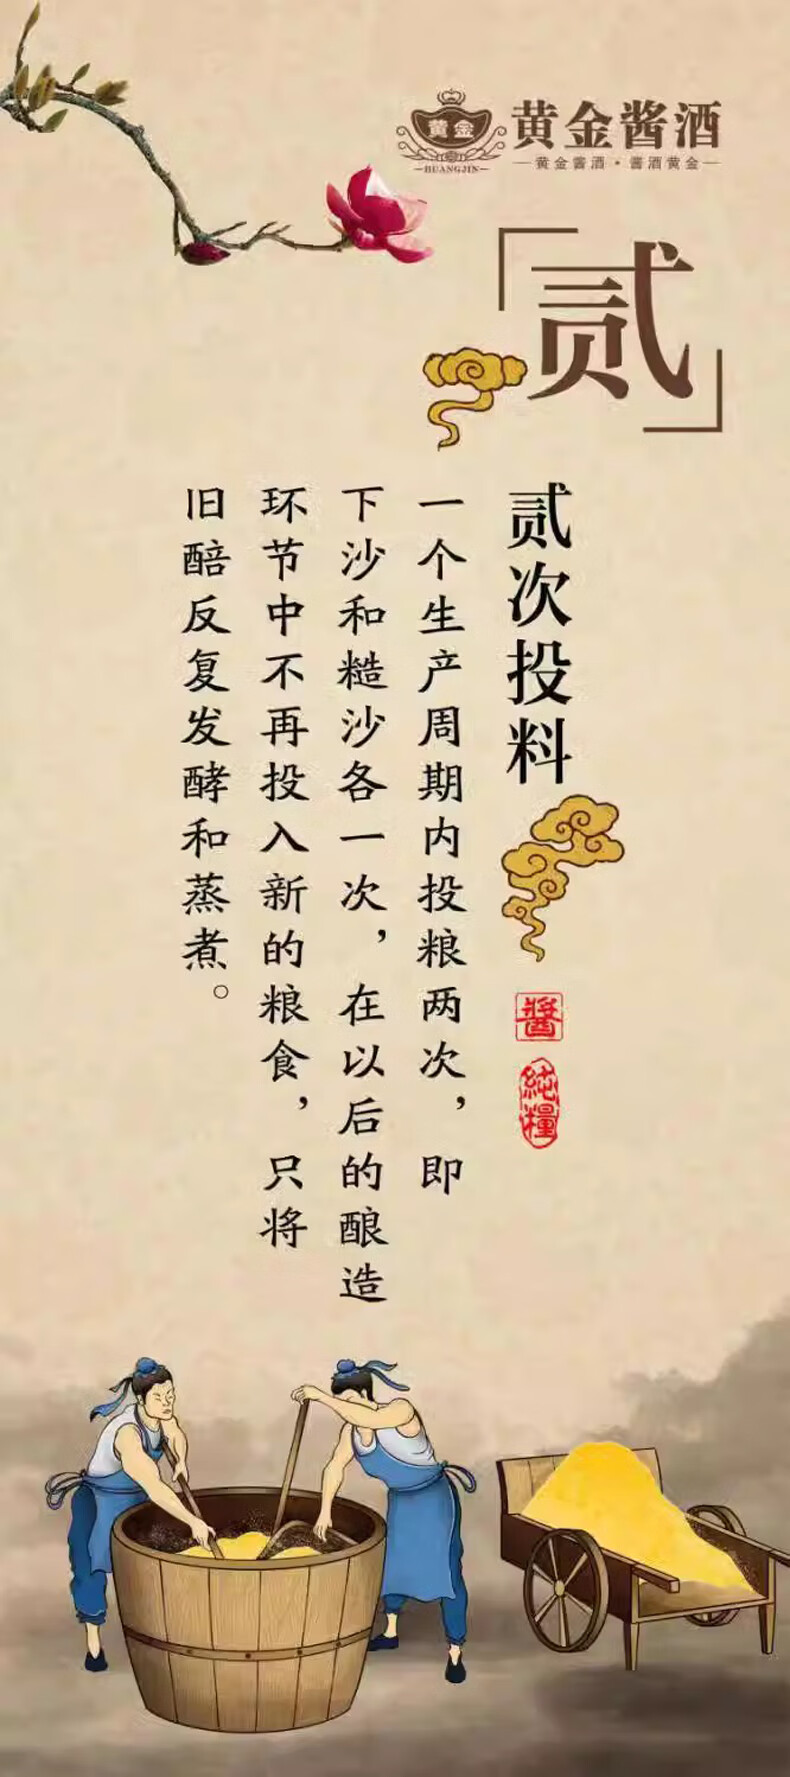 黄金
HUANGJIN
黄金酱酒
黄金酱酒·酱酒黄金
贰
贰次投料
一个生产周期内投粮两次，即
下沙和糙沙各一次，在以后的酿造
环节中不再投入新的粮食，只将
旧醅反复发酵和蒸煮。
醬
純糧